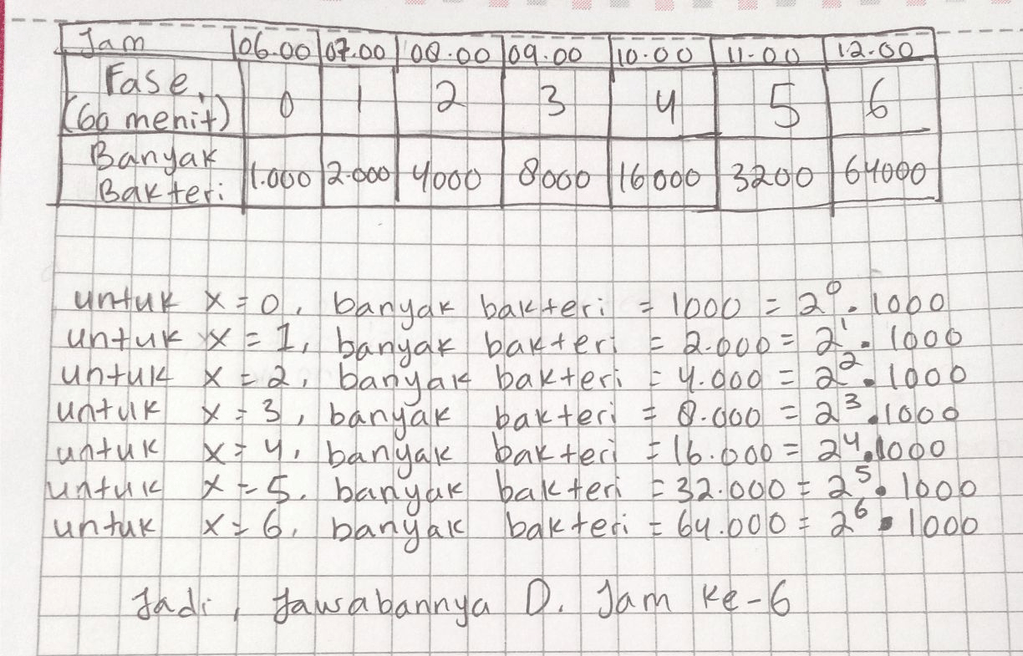 Jam 06.00 07.00 08.00 09.00 10.00 11.00 12.00
Fase (60 menit) 0 1 2 3 4 5 6
Banyak Bakteri 1.000 2.000 4000 8000 16000 3200 64000
untuk x = 0, banyak bakteri = 1000 = 2⁰. 1000
untuk x = 1, banyak bakteri = 2.000 = 2¹. 1000
untuk x = 2, banyak bakteri = 4.000 = 2². 1000
untuk x = 3, banyak bakteri = 8.000 = 2³. 1000
untuk x = 4, banyak bakteri = 16.000 = 2⁴. 1000
untuk x = 5, banyak bakteri = 32.000 = 2⁵. 1000
untuk x = 6, banyak bakteri = 64.000 = 2⁶. 1000
Jadi, Jawabannya D. Jam ke-6